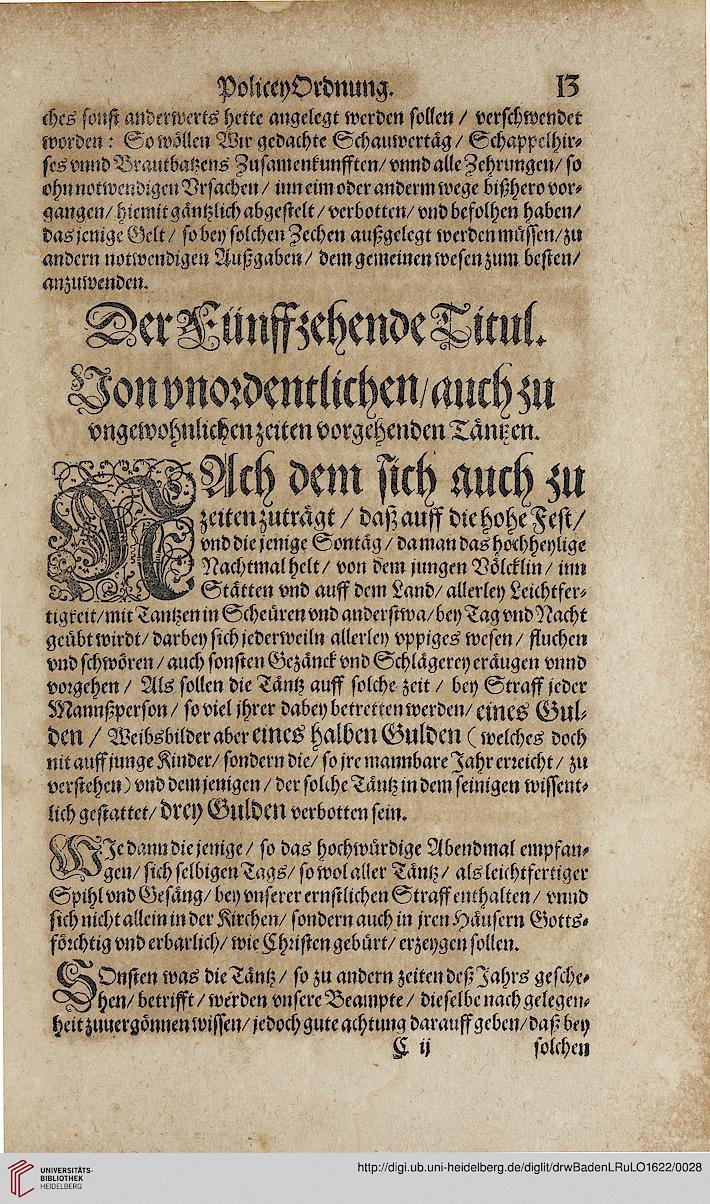 PoliceyOrdnung. 13
ches sonst anderwerts hette angelegt werden sollen / verschwendet
worden: So wöllen Wir gedachte Schauwertäg / Schappelhir-
ses vnnd Brautbatzens Zusamenkunfften / vnnd alle Zehrungen / so
ohn notwendigen Vrsachen / inn eim oder anderm wege bißhero vor-
gangen / hiemit gäntzlich abgestelt / verbotten / vnd befolhen haben /
das jenige Gelt / so bey solchen Zechen außgelegt werden müssen / zu
andern notwendigen Außgaben / dem gemeinen wesen zum besten /
anzuwenden.
Der Fünffzehende Titul.
Von vnordentlichen / auch zu
vngewohnlichen zeiten vorgehenden Täntzen.
NAch dem sich auch zu
zeiten zuträgt / daß auff die hohe Fest /
vnd die jenige Sontäg / da man das hochheylige
Nachtmal helt / von dem jungen Völcklin / inn
Stätten vnd auff dem Land / allerley Leichtfer-
tigkeit / mit Tantzen in Scheüren vnd anderstwa / bey Tag vnd Nacht
geübt wirdt / darbey sich jederweiln allerley vppiges wesen / fluchen
vnd schwören / auch sonsten Gezänck vnd Schlägerey eräugen vnnd
vorgehen / Als sollen die Täntz auff solche zeit / bey Straff jeder
Mannßperson / so viel jhrer dabey betretten werden / eines Gul-
den / Weibsbilder aber eines halben Gulden ( welches doch
nit auff junge Kinder / sondern die / so jre mannbare Jahr erreicht / zu
verstehen) vnd dem jenigen / der solche Täntz in dem seinigen wissent-
lich gestattet / drey Gulden verbotten sein.
WJe dann die jenige / so das hochwürdige Abendmal empfan-
gen / sich selbigen Tags / so wol aller Täntz / als leichtfertiger
Spihl vnd Gesäng / bey vnserer ernstlichen Straff enthalten / vnnd
sich nicht allein in der Kirchen / sondern auch in jren Häusern Gotts-
förchtig vnd erbarlich / wie Christen gebürt / erzeygen sollen.
SOnsten was die Täntz / so zu andern zeiten deß Jahrs gesche-
hen / betrifft / werden vnsere Beampte / dieselbe nach gelegen-
heit zuuergönnen wissen / jedoch gute achtung darauff geben / daß bey
C ij solchen
UNIVERSITÄTS-
BIBLIOTHEK
HEIDELBERG
http://digi.ub.uni-heidelberg.de/diglit/drwBadenLRuLO1622/0028